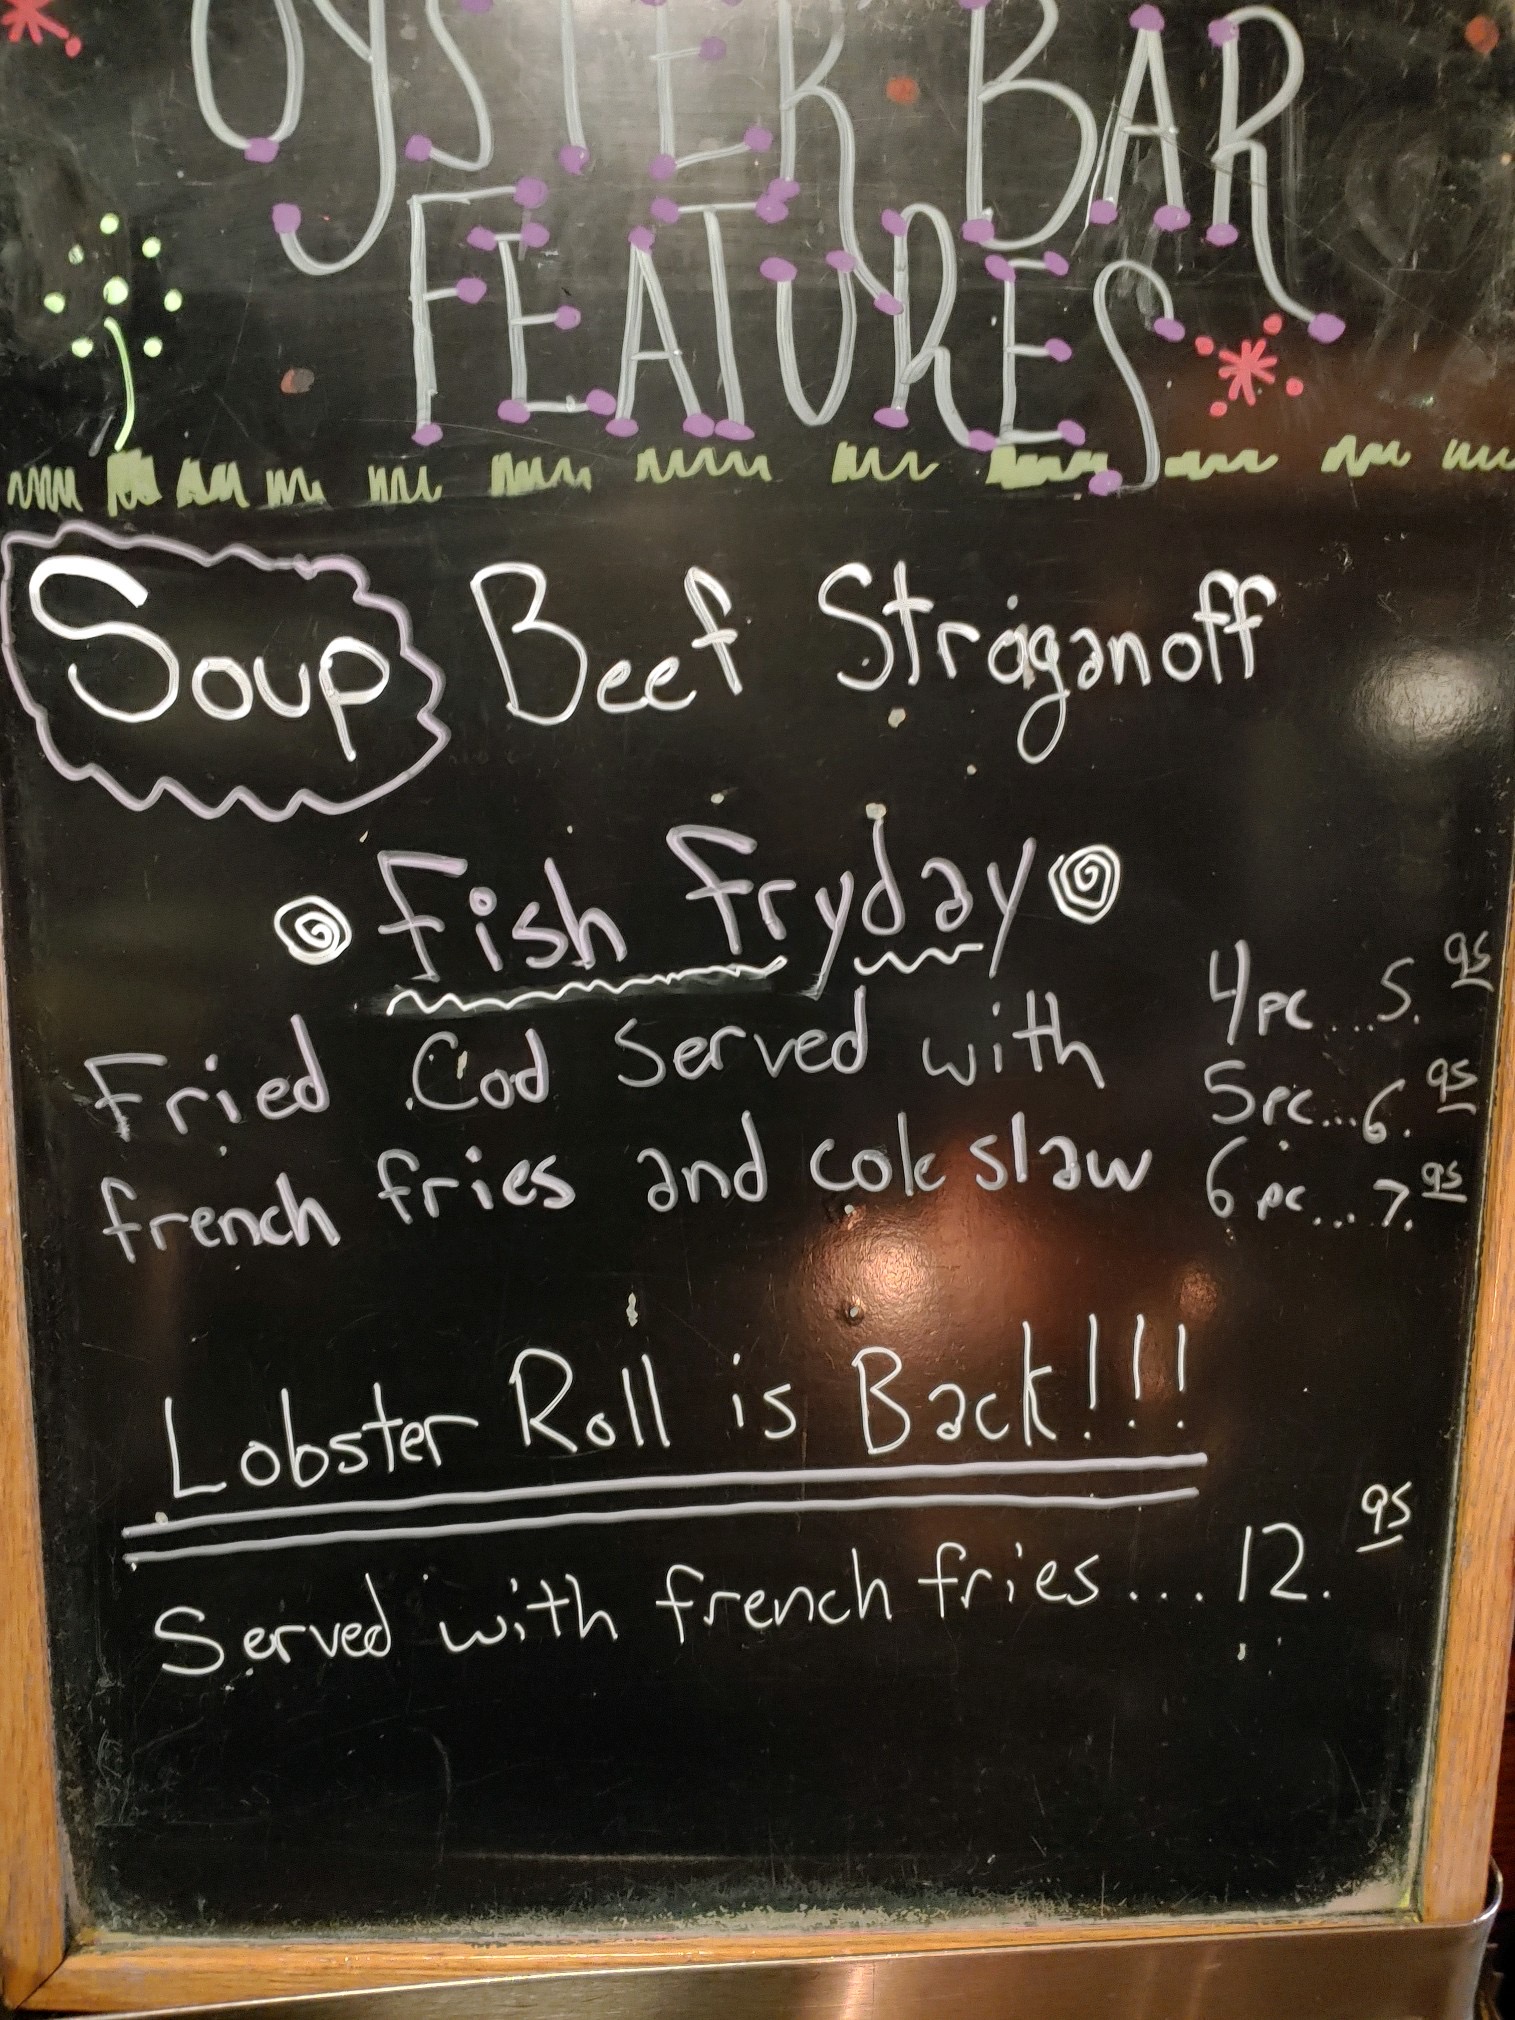 OYSTER BAR
FEATURES
Soup Beef Straganoff
Fish Fryday
Fried Cod Served with
french fries and cole slaw
4 pc...5.95
5 pc...6.95
6 pc...7.95
Lobster Roll is Back!!!
Served with french fries...12.95